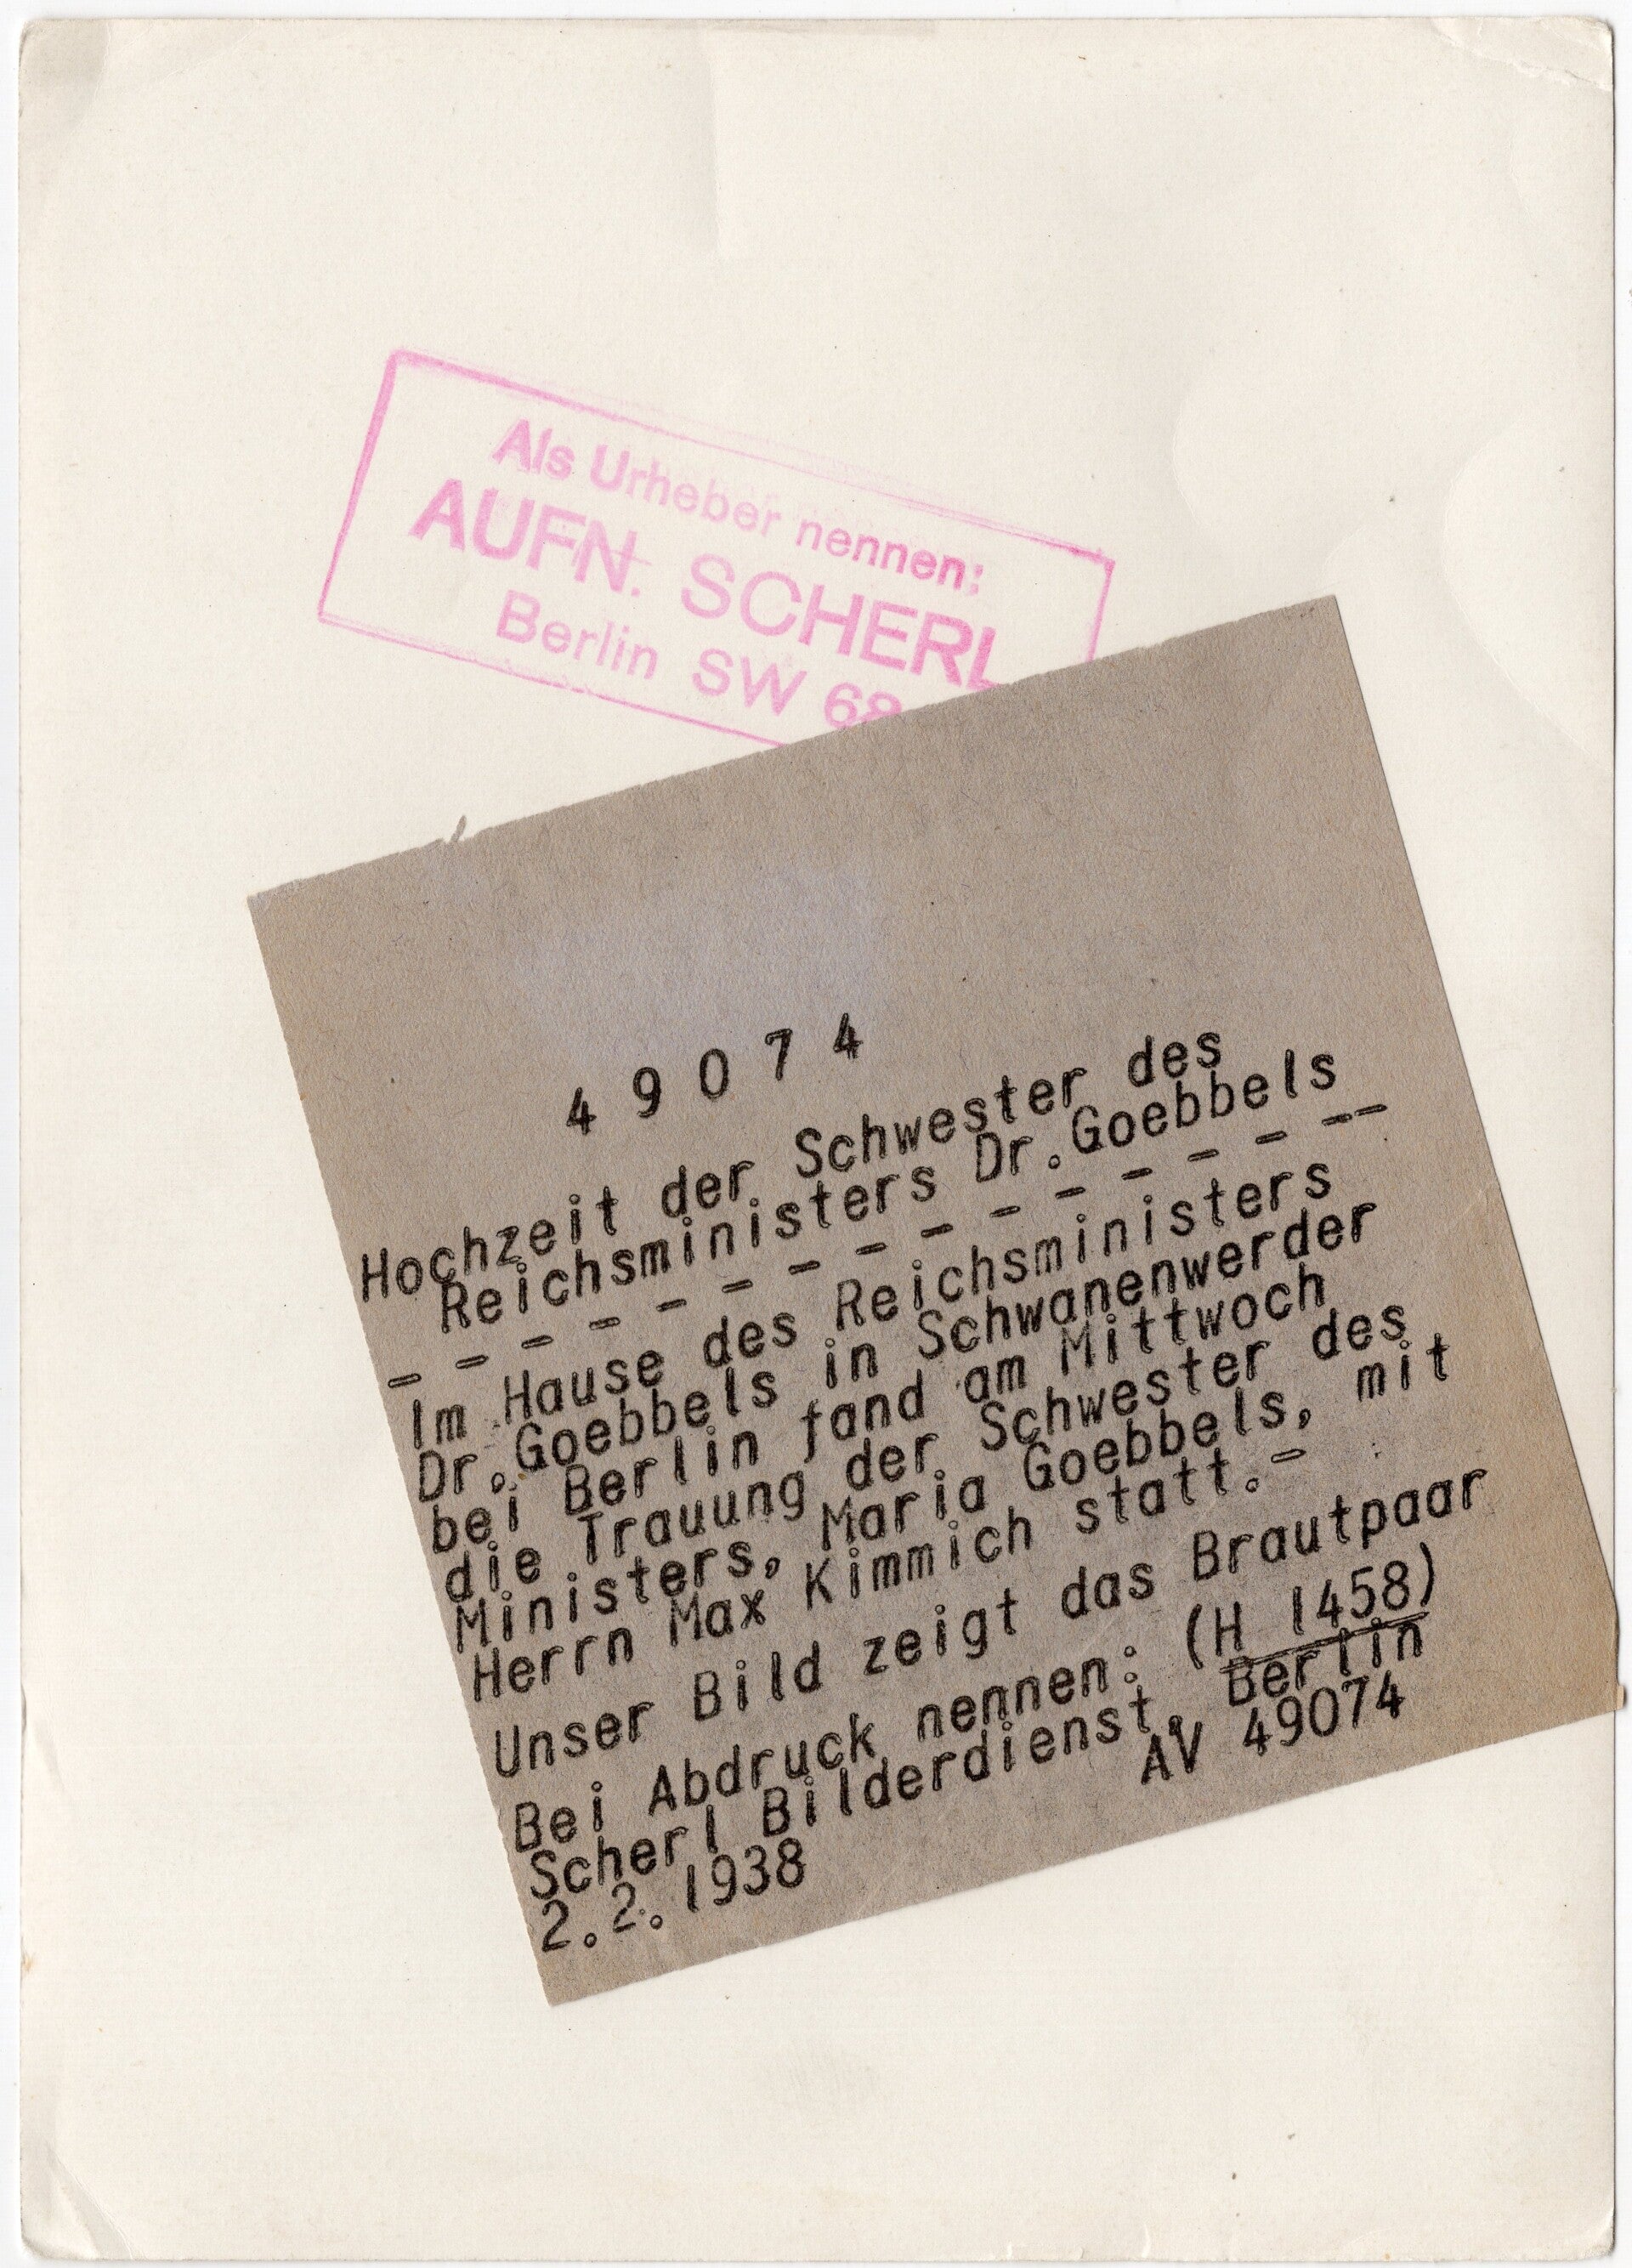 Als Urheber nennen:
AUFN. SCHERL
Berlin SW 68
4 9 0 7 4
Hochzeit der Schwester des
Reichsministers Dr.Goebbels
_ _ _ _ _ _ _ _ _ _ _ _ _ _ __
Im Hause des Reichsministers
Dr.Goebbels in Schwanenwerder
bei Berlin fand am Mittwoch
die Trauung der Schwester des
Ministers, Maria Goebbels, mit
Herrn Max Kimmich statt.-
Unser Bild zeigt das Brautpaar
Bei Abdruck nennen: (H 1458)
Scherl Bilderdienst, Berlin
2.2.1938 AV 49074